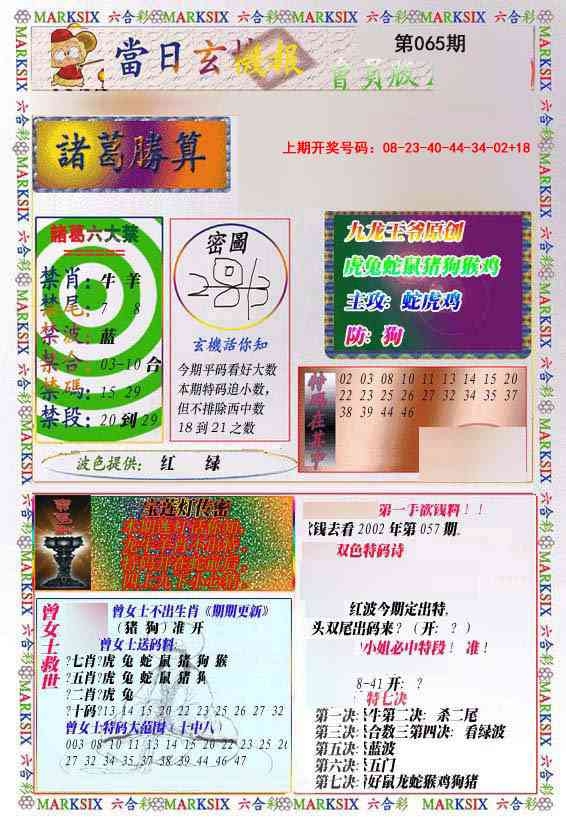 MARKSIX 六合彩 MARKSIX 六合彩 MARKSIX 六合彩 MARKSIX 六合彩 MARKSIX
當日玄機報
第065期
上期开奖号码：08-23-40-44-34-02+18
諸葛勝算
諸葛六大禁
禁肖：牛 羊
禁尾：7 8
禁波：蓝
禁合：03-10合
禁碼：15 29
禁段：20到29
密圖
玄機活你知
今期平码看好大数
本期特码追小数，
但不排除西中数
18到21之数
九龙王爷原创
虎兔蛇鼠猪狗猴鸡
主攻：蛇虎鸡
防：狗
02 03 08 10 11 13 14 15 20
22 23 25 26 27 32 34 35 37
38 39 44 46
波色提供： 红 绿
宝莲灯传密
第一手欲钱料！！
欲钱去看2002年第057期。
双色特码诗
红波今期定出特。
头双尾出码来?（开：?）
小姐必中特段! 准!
8-41开：?
特七决
第一决：牛第二决：杀二尾
第三决：合数三第四决：看绿波
第五决：蓝波
第六决：五门
第七决：好鼠龙蛇猴鸡狗猪
曾女士救世
曾女士不出生肖《期期更新》
（猪 狗）准 开
曾女士送码料
?七肖?虎 兔 蛇 鼠 猪 狗 猴
?五肖?虎 兔 蛇 鼠 猪 狗
?二肖?虎 兔
?十码?13 14 15 20 22 23 25 26 27 32
曾女士特码大范围（十中八）
003 08 10 11 13 14 15 20 22 23 25 26
27 32 34 35 37 38 39 44 46 47
MARKSIX 六合彩 MARKSIX 六合彩 MARKSIX 六合彩 MARKSIX 六合彩 MARKSIX